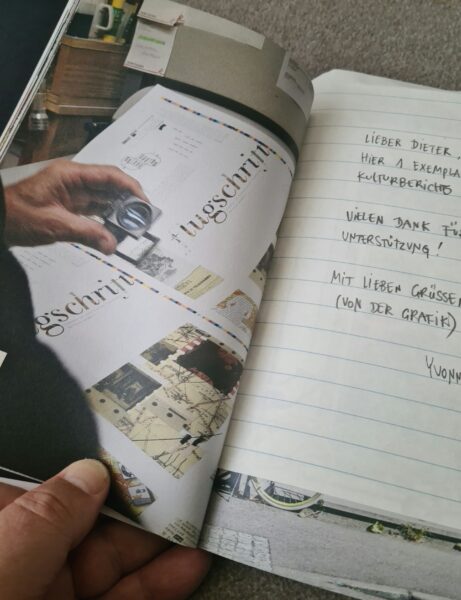 flugschrift
flugschrift
LIEBER DIETER,
HIER 1 EXEMPLA
KULTURBERICHTE
VIELEN DANK FÜR
UNTERSTÜTZUNG!
MIT LIEBEN GRÜSSEN
(VON DER GRAFIK)
YVONN